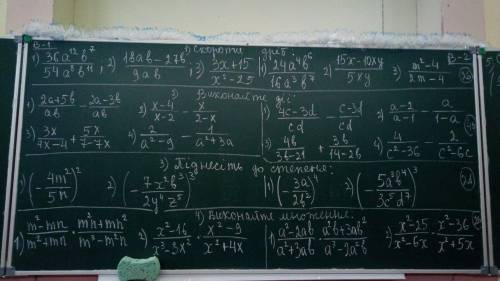 В-1 1) Скороти дроб: В-2
1) 36a¹²b⁷/54a⁸b¹¹, 2) 18ab-27b²/9ab, 3) 3x+15/x²-25 1) 24a⁴b⁶/16a³b⁷ 2) 15x-10xy/5xy 3) m²-4/2m-4
2) Виконайте дії:
1) 2a+5b/ab - 2a-3b/ab 2) x-4/x-2 - x/2-x 1) 4c-3d/cd - c-3d/cd 2) a-2/a-1 - a/1-a
3) 3x/7x-4 + 5x/7-7x 4) 2/a²-9 - 1/a²+3a 3) 4b/3b-21 + 3b/14-2b 4) 4/c²-36 - 2/c²-6c
3) Піднесіть до степеня:
1) (-4m²/5n)² 2) (-7x²b³/2y⁴z⁵)³ 1) (-3a/2b²)⁴ 2) (-5a³b⁴/3c⁵d⁷)³
4) Виконайте множення:
1) m²-mn/m²+mn · m²n+mn²/m³-m²n 2) x²-16/x³-3x² · x²-9/x²+4x 1) a²-2ab/a²+3ab · a²b+3ab²/a³-2a²b 2) x²-25/x²-6x · x²-36/x²+5x